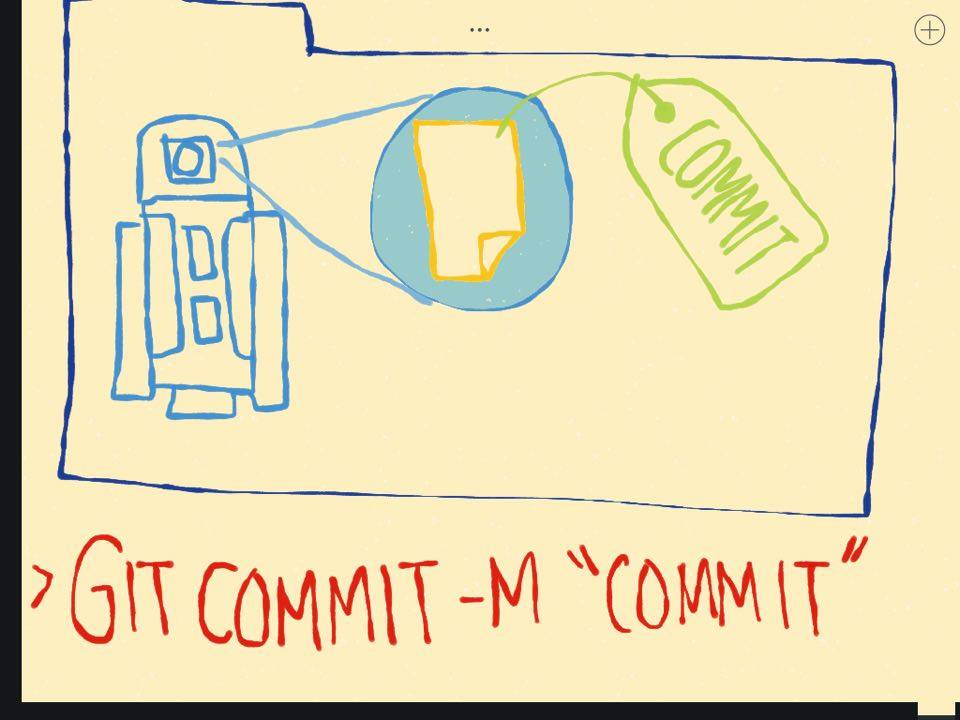 COMMIT
> GIT COMMIT -M "COMMIT"